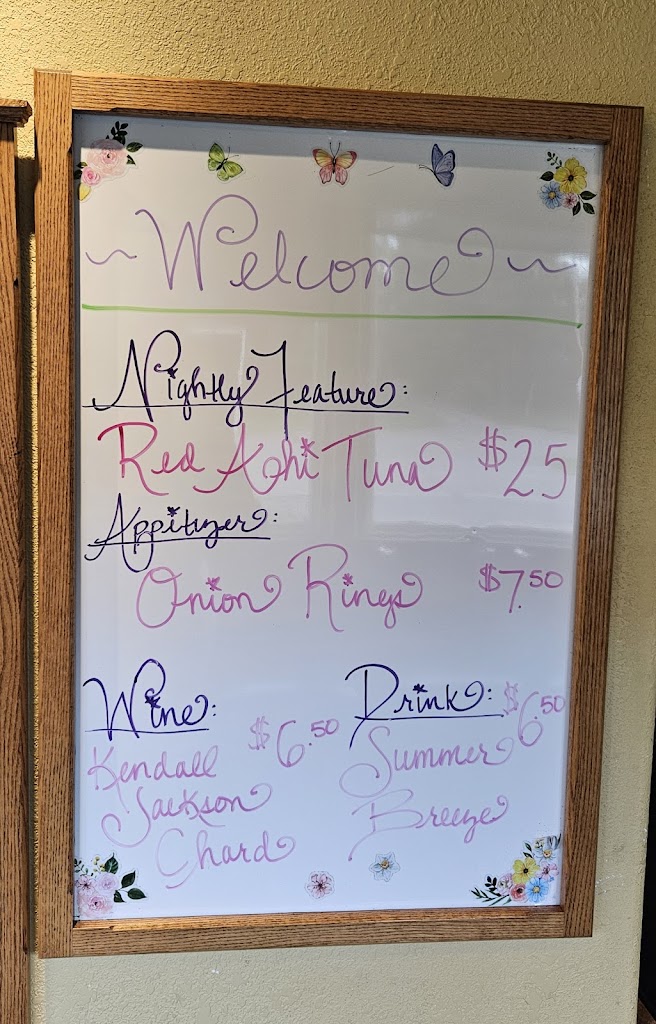 ~ Welcome ~
Nightly Feature:
Red Ahi Tuna $25
Appitizer:
Onion Rings $7.50
Wine: $6.50
Kendall
Jackson
Chard
Drink: $6.50
Summer
Breeze